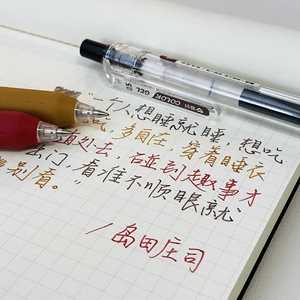 COLOR GEL
“一个人想睡就睡，想吃
，多自在，穿着睡衣
去，碰到趣事才
出门，看谁不顺眼就
别看。”
/岛田庄司